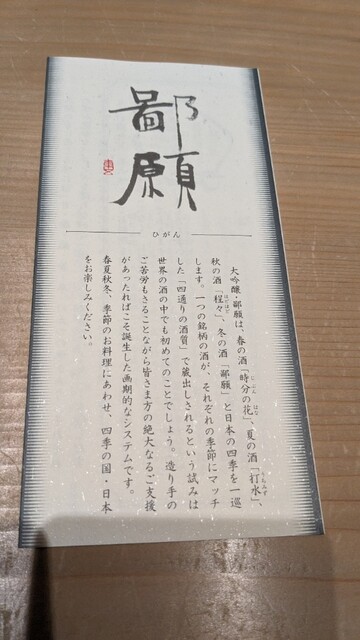 鄙願
ひがん
大吟醸・鄙願は、春の酒「時分の花」、夏の酒「打水」、
秋の酒「程々」、冬の酒「鄙願」と日本の四季を一巡
します。一つの銘柄の酒が、それぞれの季節にマッチ
した「四通りの酒質」で蔵出しされるという試みは
世界の酒の中でも初めてのことでしょう。造り手の
ご苦労もさることながら皆さま方の絶大なるご支援
があったればこそ誕生した画期的なシステムです。
春夏秋冬、季節のお料理にあわせ、四季の国・日本
をお楽しみください。